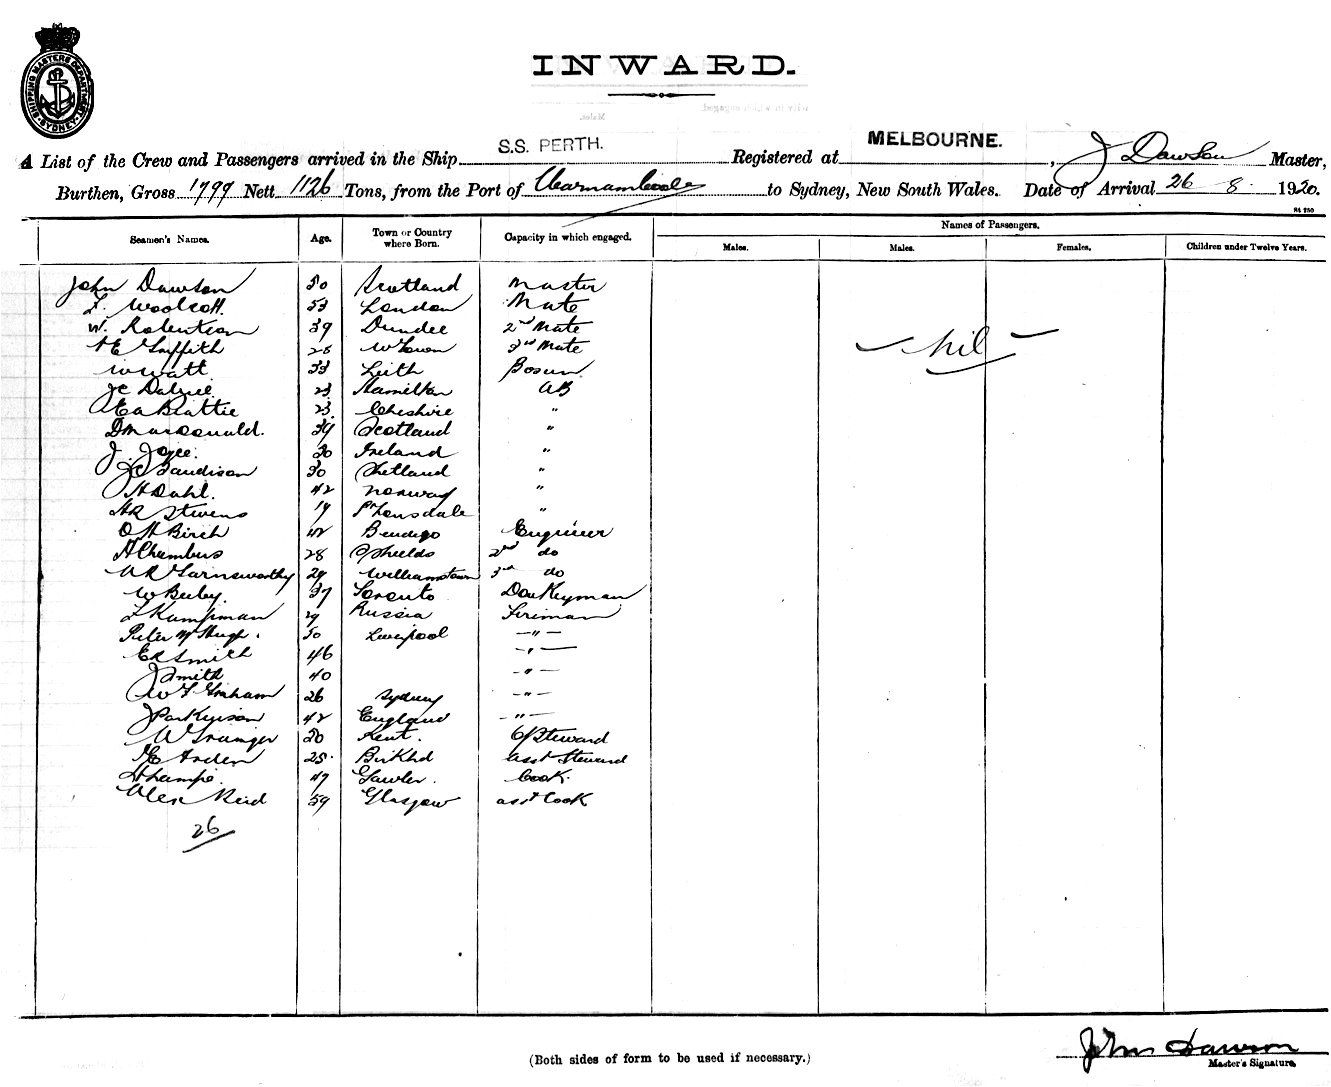 SHIPPING MASTERS DEPARTMENT
SYDNEY
INWARD.
A List of the Crew and Passengers arrived in the Ship S.S. PERTH. Registered at MELBOURNE., J Dawson Master,
Burthen, Gross 1799 Nett 1126 Tons, from the Port of Warrnambool to Sydney, New South Wales. Date of Arrival 26 8. 1920.
Seamen's Names. Age. Town or Country where Born. Capacity in which engaged. Names of Passengers.
Males. Males. Females. Children under Twelve Years.
John Dawson 50 Scotland Master
F. Woolcott. 53 London Mate
W. Robertson 39 Dundee 2nd Mate
Griffith W Town 3rd Mate
nil
W Watt 33 Leith Bosun
JC Dalziel 23 Hamilton AB
Beattie 23 Cheshire "
D MacDonald. 39 Scotland "
J. Joyce. 30 Ireland "
Gaudison 30 Shetland "
H Dahl. 42 Norway "
HR Stivens 19 Pt Lonsdale "
O H Birch 42 Bendigo Engineer
H Chambers 28 S Shields 2nd do
Farnsworthy 29 Williamstown 3rd do
W Beeby. 37 Toronto Donkeyman
Kampman 29 Russia Fireman
Peter McHugh. 50 Liverpool —"—
Smith 46 —"—
J Smith 40 —"—
W F Graham 26 Sydney —"—
J Parkinson 42 England —"—
W Grainger 30 Kent. Steward
Arden 25 Birkhd asst Steward
47 Gawler. Cook.
Alex Reid 59 Glasgow asst Cook
26
(Both sides of form to be used if necessary.)
John Dawson
Master's Signature.